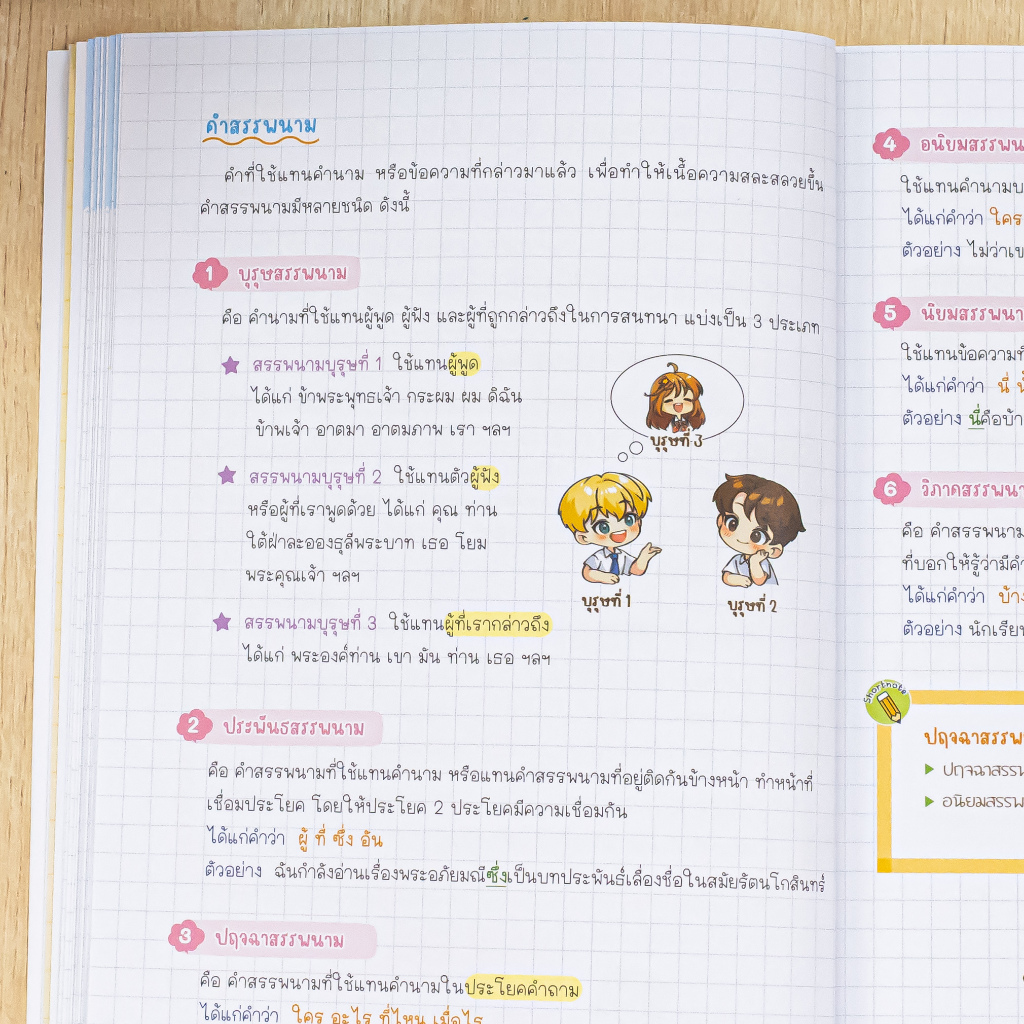 คำสรรพนาม
คำที่ใช้แทนคำนาม หรือข้อความที่กล่าวมาแล้ว เพื่อทำให้เนื้อความสละสลวยขึ้น
คำสรรพนามมีหลายชนิด ดังนี้
1 บุรุษสรรพนาม
คือ คำนามที่ใช้แทนผู้พูด ผู้ฟัง และผู้ที่ถูกกล่าวถึงในการสนทนา แบ่งเป็น 3 ประเภท
★ สรรพนามบุรุษที่ 1 ใช้แทนผู้พูด
ได้แก่ ข้าพระพุทธเจ้า กระผม ผม ดิฉัน
ข้าพเจ้า อาตมา อาตมภาพ เรา ฯลฯ
★ สรรพนามบุรุษที่ 2 ใช้แทนตัวผู้ฟัง
หรือผู้ที่เราพูดด้วย ได้แก่ คุณ ท่าน
ใต้ฝ่าละอองธุลีพระบาท เธอ โยม
พระคุณเจ้า ฯลฯ
★ สรรพนามบุรุษที่ 3 ใช้แทนผู้ที่เรากล่าวถึง
ได้แก่ พระองค์ท่าน เขา มัน ท่าน เธอ ฯลฯ
บุรุษที่ 3
บุรุษที่ 1
บุรุษที่ 2
2 ประพันธสรรพนาม
คือ คำสรรพนามที่ใช้แทนคำนาม หรือแทนคำสรรพนามที่อยู่ติดกันข้างหน้า ทำหน้าที่
เชื่อมประโยค โดยให้ประโยค 2 ประโยคมีความเชื่อมกัน
ได้แก่คำว่า ผู้ ที่ ซึ่ง อัน
ตัวอย่าง ฉันกำลังอ่านเรื่องพระอภัยมณีซึ่งเป็นบทประพันธ์เลื่องชื่อในสมัยรัตนโกสินทร์
3 ปฤจฉาสรรพนาม
คือ คำสรรพนามที่ใช้แทนคำนามในประโยคคำถาม
ได้แก่คำว่า ใคร อะไร ที่ไหน เมื่อไร
4 อนิยมสรรพน
ใช้แทนคำนามบ
ได้แก่คำว่า ใคร
ตัวอย่าง ไม่ว่าเข
5 นิยมสรรพนา
ใช้แทนข้อความที่
ได้แก่คำว่า นี่
ตัวอย่าง นี่คือบ้า
6 วิภาคสรรพนา
คือ คำสรรพนา
ที่บอกให้รู้ว่ามีคำ
ได้แก่คำว่า บ้าง
ตัวอย่าง นักเรีย
Shortnote
ปฤจฉาสรรพ
ปฤจฉาสรรพ
อนิยมสรรพ